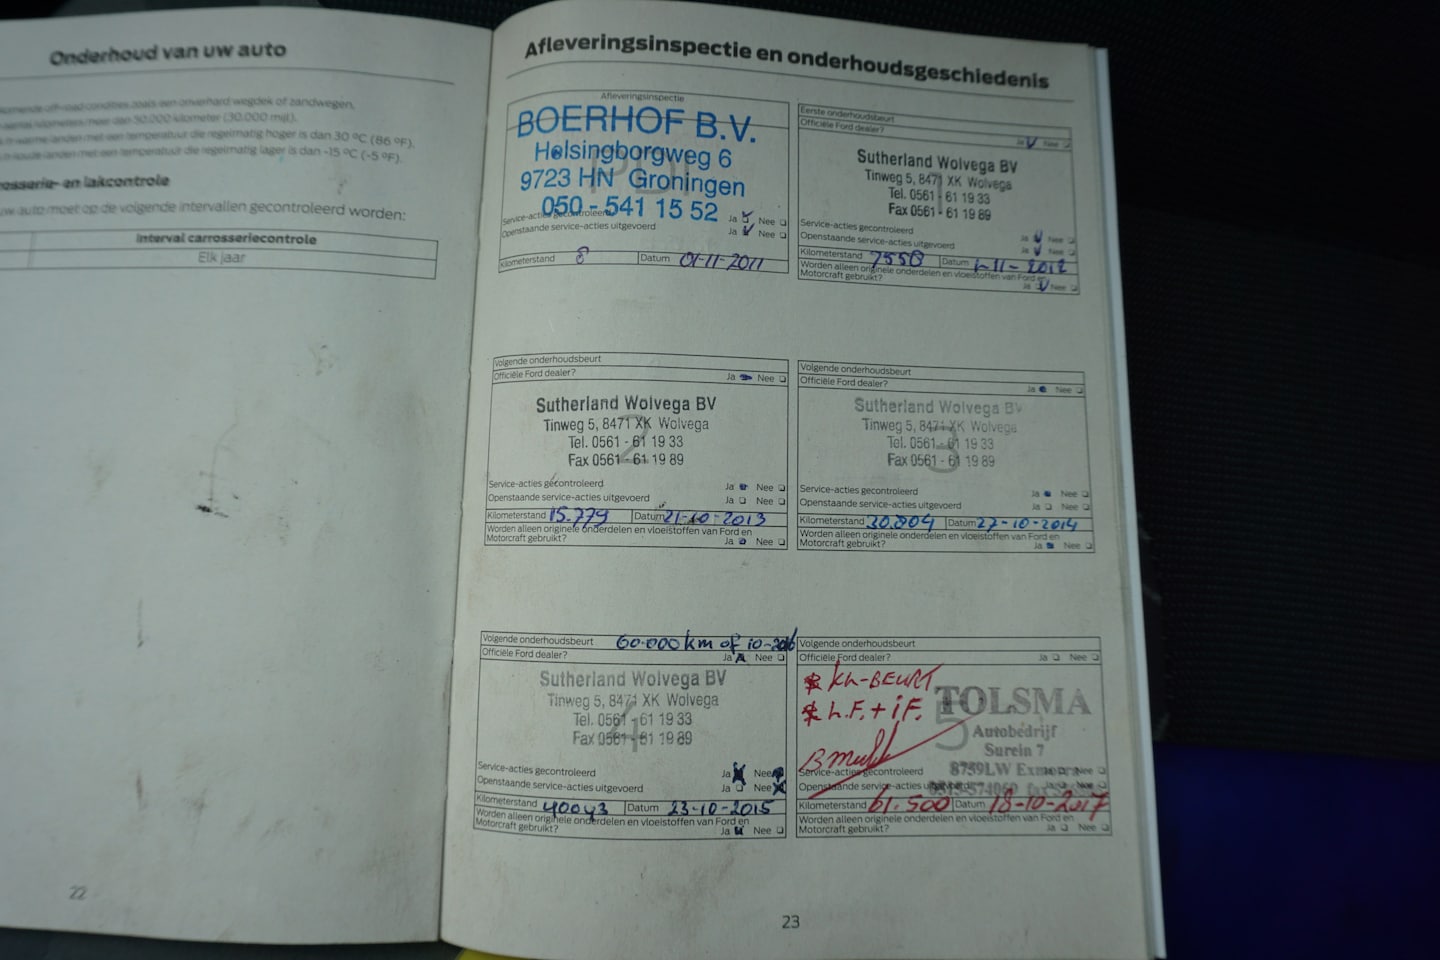 Onderhoud van uw auto
off-road condities zoals een onverhard wegdek of zandwegen.
meer dan 50.000 kilometer (30.000 mijl).
met een temperatuur die regelmatig hoger is dan 30 ºC (86 ºF).
met een temperatuur die regelmatig lager is dan -15 ºC (-5 ºF).
osserie- en lakcontrole
uw auto moet op de volgende intervallen gecontroleerd worden:
Interval carrosseriecontrole
Elk jaar
22
Afleveringsinspectie en onderhoudsgeschiedenis
Afleveringsinspectie
BOERHOF B.V.
Helsingborgweg 6
9723 HN Groningen
050 - 541 15 52
Service-acties gecontroleerd Ja Nee
Openstaande service-acties uitgevoerd Ja Nee
Kilometerstand 8 Datum 01-11-2011
Eerste onderhoudsbeurt
Officiële Ford dealer?
Ja Nee
Sutherland Wolvega BV
Tinweg 5, 8471 XK Wolvega
Tel. 0561 - 61 19 33
Fax 0561 - 61 19 89
Service-acties gecontroleerd Ja Nee
Openstaande service-acties uitgevoerd Ja Nee
Kilometerstand 7558 Datum 1-11-2012
Worden alleen originele onderdelen en vloeistoffen van Ford en
Motorcraft gebruikt? Ja Nee
Volgende onderhoudsbeurt
Officiële Ford dealer? Ja Nee
2
Sutherland Wolvega BV
Tinweg 5, 8471 XK Wolvega
Tel. 0561 - 61 19 33
Fax 0561 - 61 19 89
Service-acties gecontroleerd Ja Nee
Openstaande service-acties uitgevoerd Ja Nee
Kilometerstand 15.779 Datum 21-10-2013
Worden alleen originele onderdelen en vloeistoffen van Ford en
Motorcraft gebruikt? Ja Nee
Volgende onderhoudsbeurt
Officiële Ford dealer? Ja Nee
3
Sutherland Wolvega BV
Tinweg 5, 8471 XK Wolvega
Tel. 0561 - 61 19 33
Fax 0561 - 61 19 89
Service-acties gecontroleerd Ja Nee
Openstaande service-acties uitgevoerd Ja Nee
Kilometerstand 30.804 Datum 27-10-2014
Worden alleen originele onderdelen en vloeistoffen van Ford en
Motorcraft gebruikt? Ja Nee
Volgende onderhoudsbeurt 60.000 km of 10-2016
Officiële Ford dealer? Ja Nee
4
Sutherland Wolvega BV
Tinweg 5, 8471 XK Wolvega
Tel. 0561 - 61 19 33
Fax 0561 - 61 19 89
Service-acties gecontroleerd Ja Nee
Openstaande service-acties uitgevoerd Ja Nee
Kilometerstand 40043 Datum 23-10-2015
Worden alleen originele onderdelen en vloeistoffen van Ford en
Motorcraft gebruikt? Ja Nee
Volgende onderhoudsbeurt
Officiële Ford dealer? Ja Nee
KL-BEURT
L.F. + i F.
5
TOLSMA
Autobedrijf
Surein 7
8759LW Exmorra
Service-acties gecontroleerd Ja Nee
Openstaande service-acties uitgevoerd Ja Nee
Kilometerstand 61.500 Datum 18-10-2017
Worden alleen originele onderdelen en vloeistoffen van Ford en
Motorcraft gebruikt? Ja Nee
23